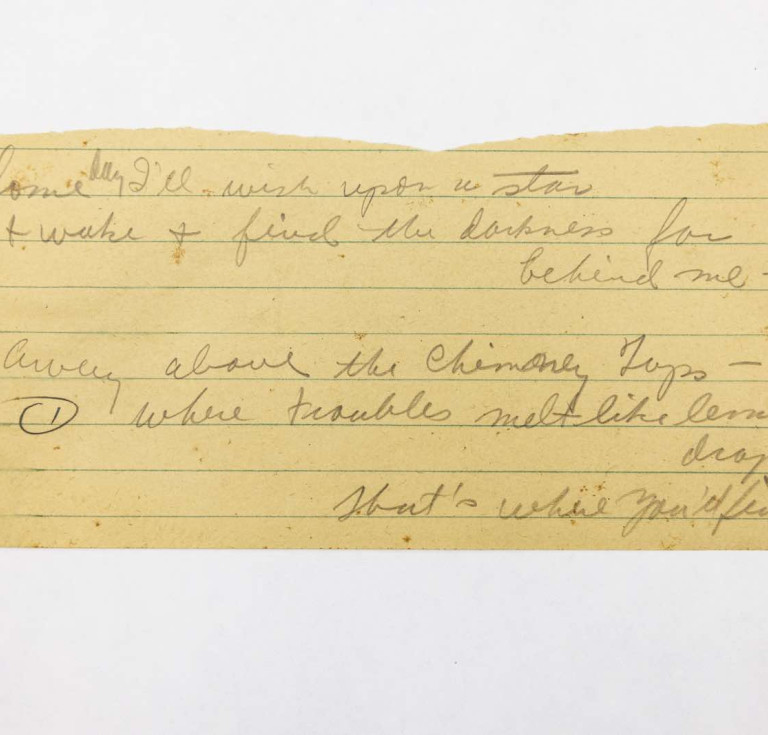 Some day I'll wish upon a star
+ wake + find the darkness far
behind me -
Away above the Chimoney Tops —
① where troubles melt like lem
drop
That's where you'd fin